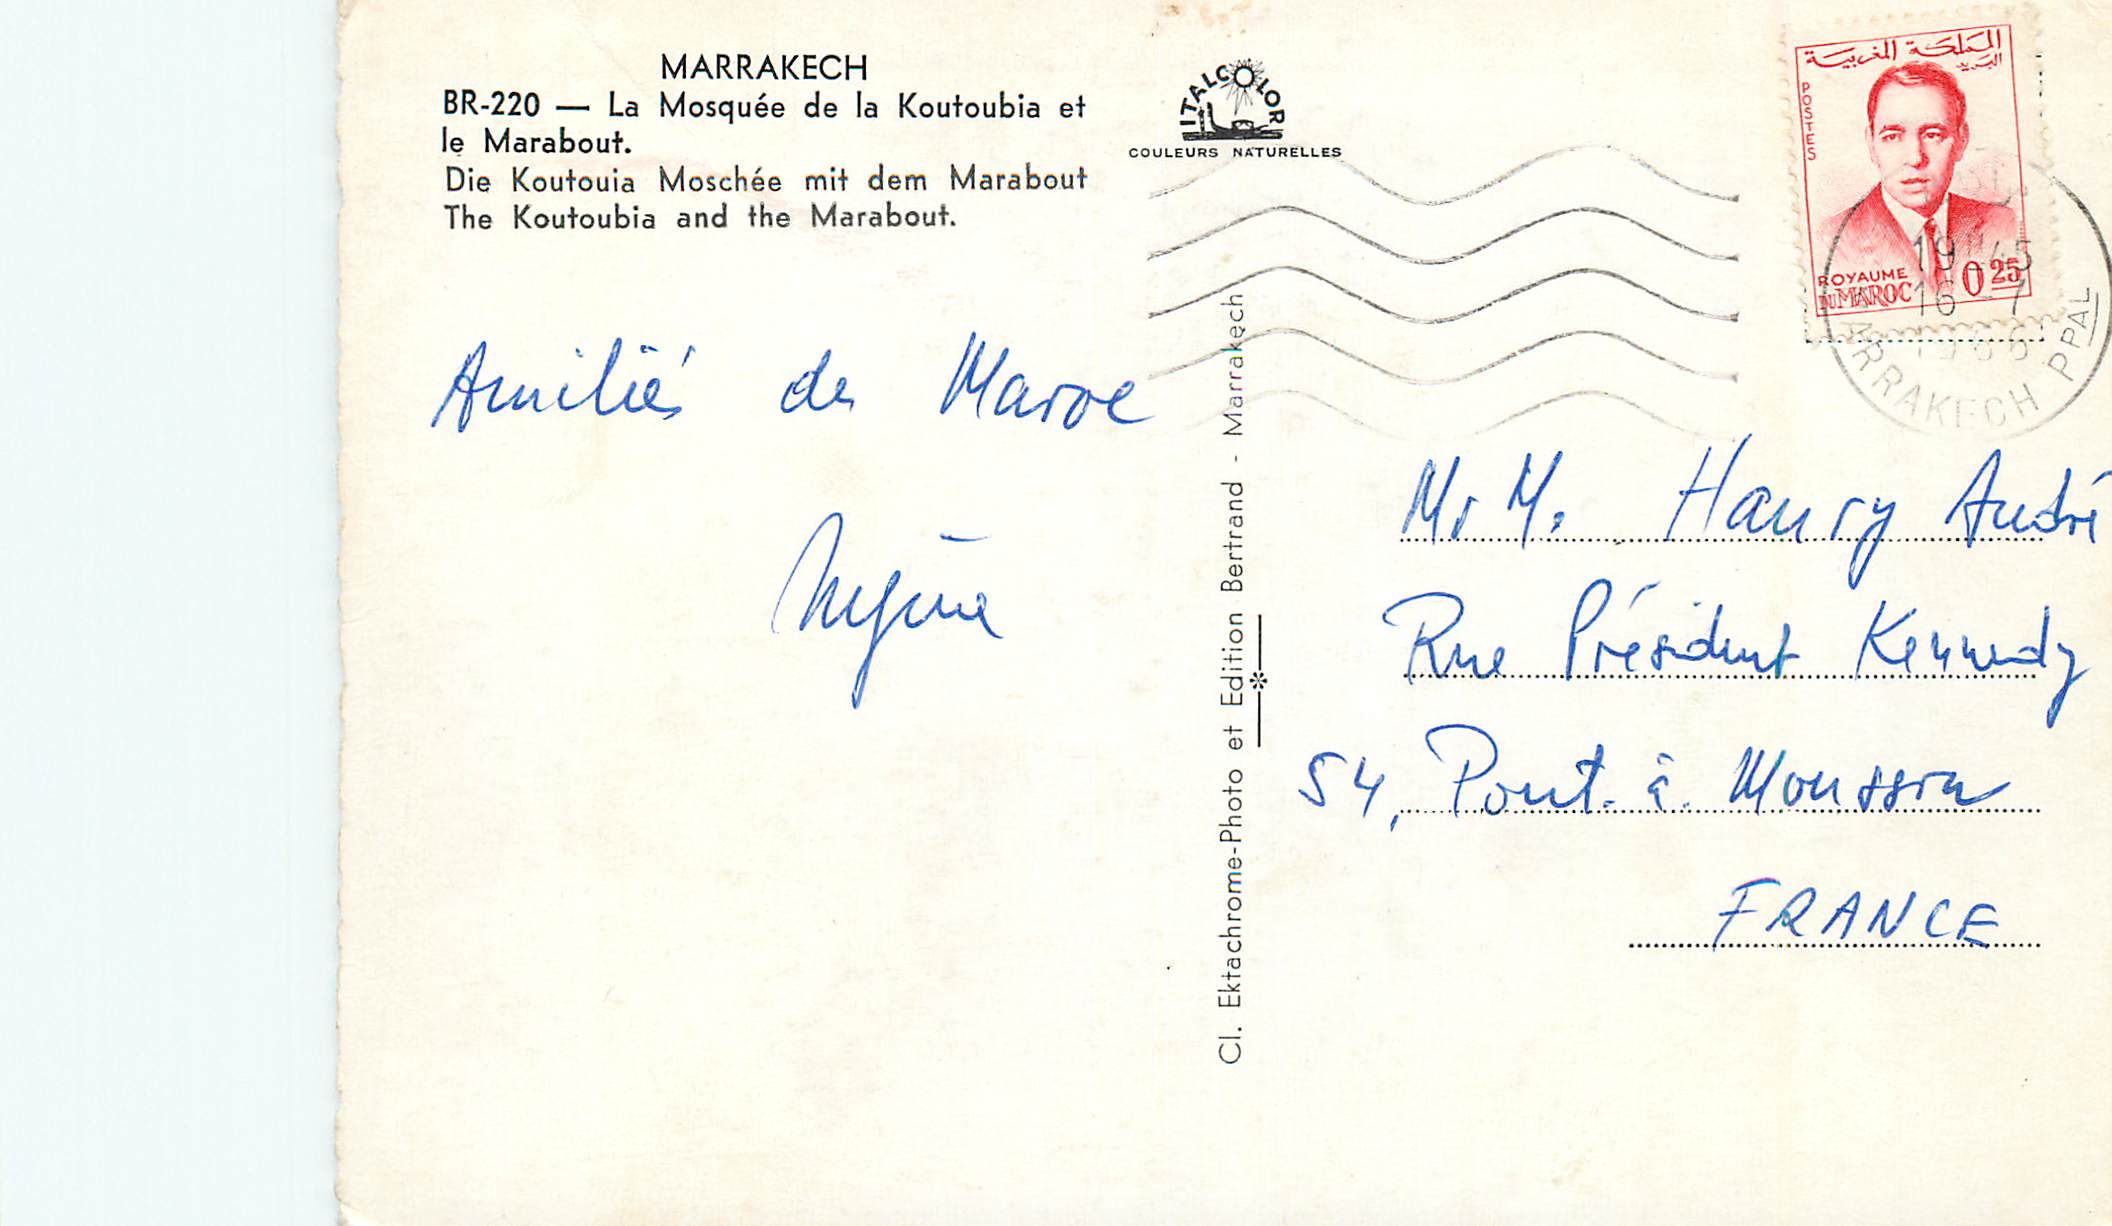 MARRAKECH
BR-220 — La Mosquée de la Koutoubia et
le Marabout.
Die Koutouia Moschée mit dem Marabout
The Koutoubia and the Marabout.
ITALCOLOR
COULEURS NATURELLES
المملكة المغربية
البريد
POSTES
ROYAUME
DU MAROC
0 25
19 45
16 -7
1966
MARRAKECH PPAL
Amitiés de Maroc
Cl. Ektachrome-Photo et Edition Bertrand - Marrakech
Mr M. Haury André
Rue Président Kennedy
54, Pont-à-Mousson
FRANCE